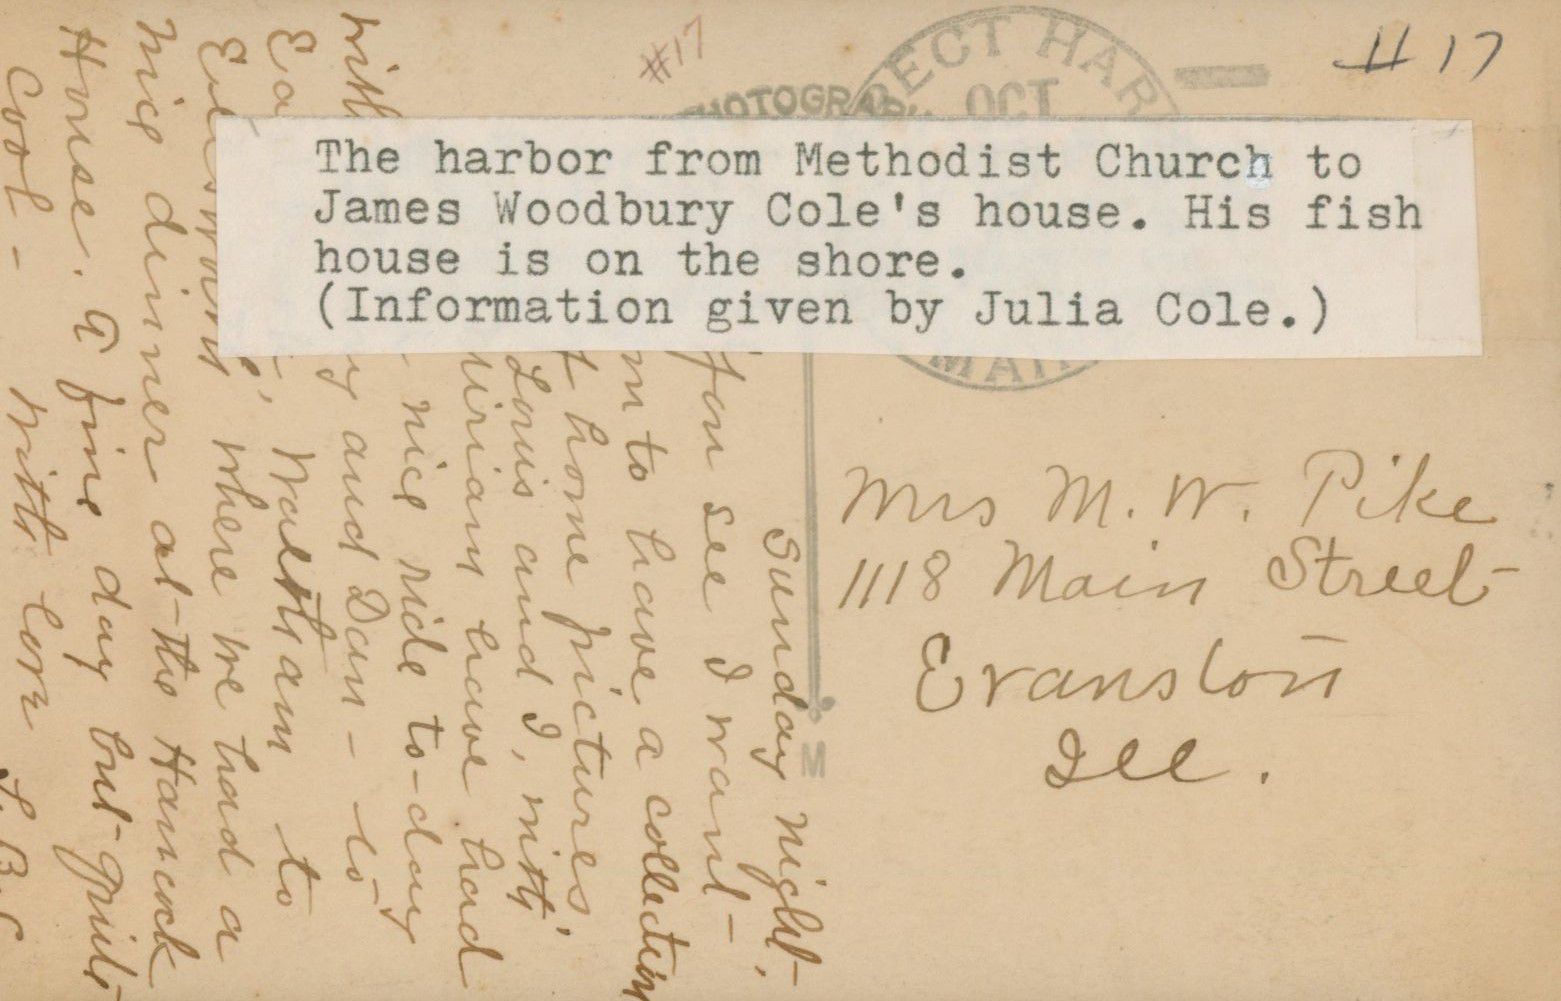 #17
#17
PHOTOGRAP
ECT HAR
OCT
MAI
The harbor from Methodist Church to
James Woodbury Cole's house. His fish
house is on the shore.
(Information given by Julia Cole.)
Mrs M. W. Pike
1118 Main Street
Evanston
Ill.
M
Sunday night.
you see I want
to have a collection
home pictures
Louis and I, with
have had
nice ride to-day
and Dan - to
Waltham to
Ellsworth where we had a
nice dinner at the Hancock
House. A fine day but quite
Cool - with love L.B.C
with
Ea